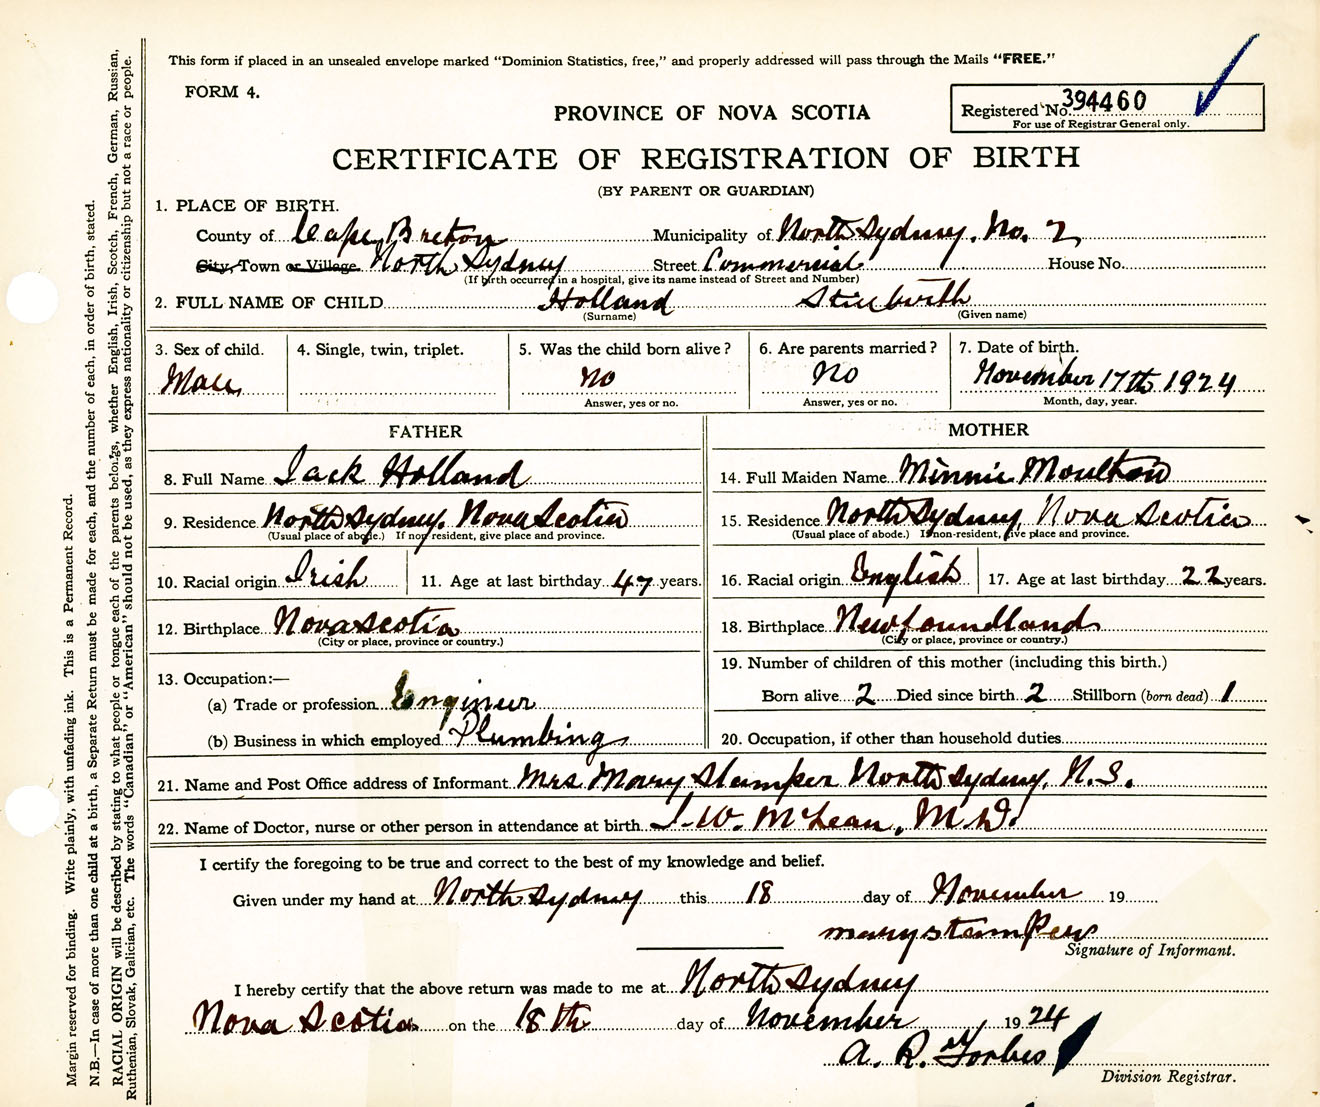 This form if placed in an unsealed envelope marked "Dominion Statistics, free," and properly addressed will pass through the Mails "FREE."
FORM 4.
PROVINCE OF NOVA SCOTIA
Registered No. 394460
For use of Registrar General only.
CERTIFICATE OF REGISTRATION OF BIRTH
(BY PARENT OR GUARDIAN)
1. PLACE OF BIRTH.
County of Cape Breton Municipality of North Sydney. No. 2
City, Town or Village North Sydney Street Commercial House No.
(If birth occurred in a hospital, give its name instead of Street and Number)
2. FULL NAME OF CHILD Holland Stillbirth
(Surname) (Given name)
3. Sex of child. 4. Single, twin, triplet. 5. Was the child born alive? 6. Are parents married? 7. Date of birth.
Male No No November 17th 1924
Answer, yes or no. Answer, yes or no. Month, day, year.
FATHER MOTHER
8. Full Name Jack Holland 14. Full Maiden Name Minnie Moulton
9. Residence North Sydney. Nova Scotia 15. Residence North Sydney, Nova Scotia
(Usual place of abode.) If non-resident, give place and province. (Usual place of abode.) If non-resident, give place and province.
10. Racial origin Irish 11. Age at last birthday 47 years. 16. Racial origin English 17. Age at last birthday 22 years.
12. Birthplace Nova Scotia 18. Birthplace Newfoundland
(City or place, province or country.) (City or place, province or country.)
13. Occupation:— 19. Number of children of this mother (including this birth.)
(a) Trade or profession Engineer Born alive 2 Died since birth 2 Stillborn (born dead) 1
(b) Business in which employed Plumbing 20. Occupation, if other than household duties
21. Name and Post Office address of Informant Mrs Mary Stamper North Sydney, N.S.
22. Name of Doctor, nurse or other person in attendance at birth J. W. McLean, M.D.
I certify the foregoing to be true and correct to the best of my knowledge and belief.
Given under my hand at North Sydney this 18 day of November 19
mary stamper
Signature of Informant.
I hereby certify that the above return was made to me at North Sydney
Nova Scotia on the 18th day of November 1924
A. R. Forbes
Division Registrar.
Margin reserved for binding. Write plainly, with unfading ink. This is a Permanent Record.
N.B.—In case of more than one child at a birth, a Separate Return must be made for each, and the number of each, in order of birth, stated.
RACIAL ORIGIN will be described by stating to what people or tongue each of the parents belongs, whether English, Irish, Scotch, French, German, Russian,
Ruthenian, Slovak, Galician, etc. The words "Canadian" or "American" should not be used, as they express nationality or citizenship but not a race or people.